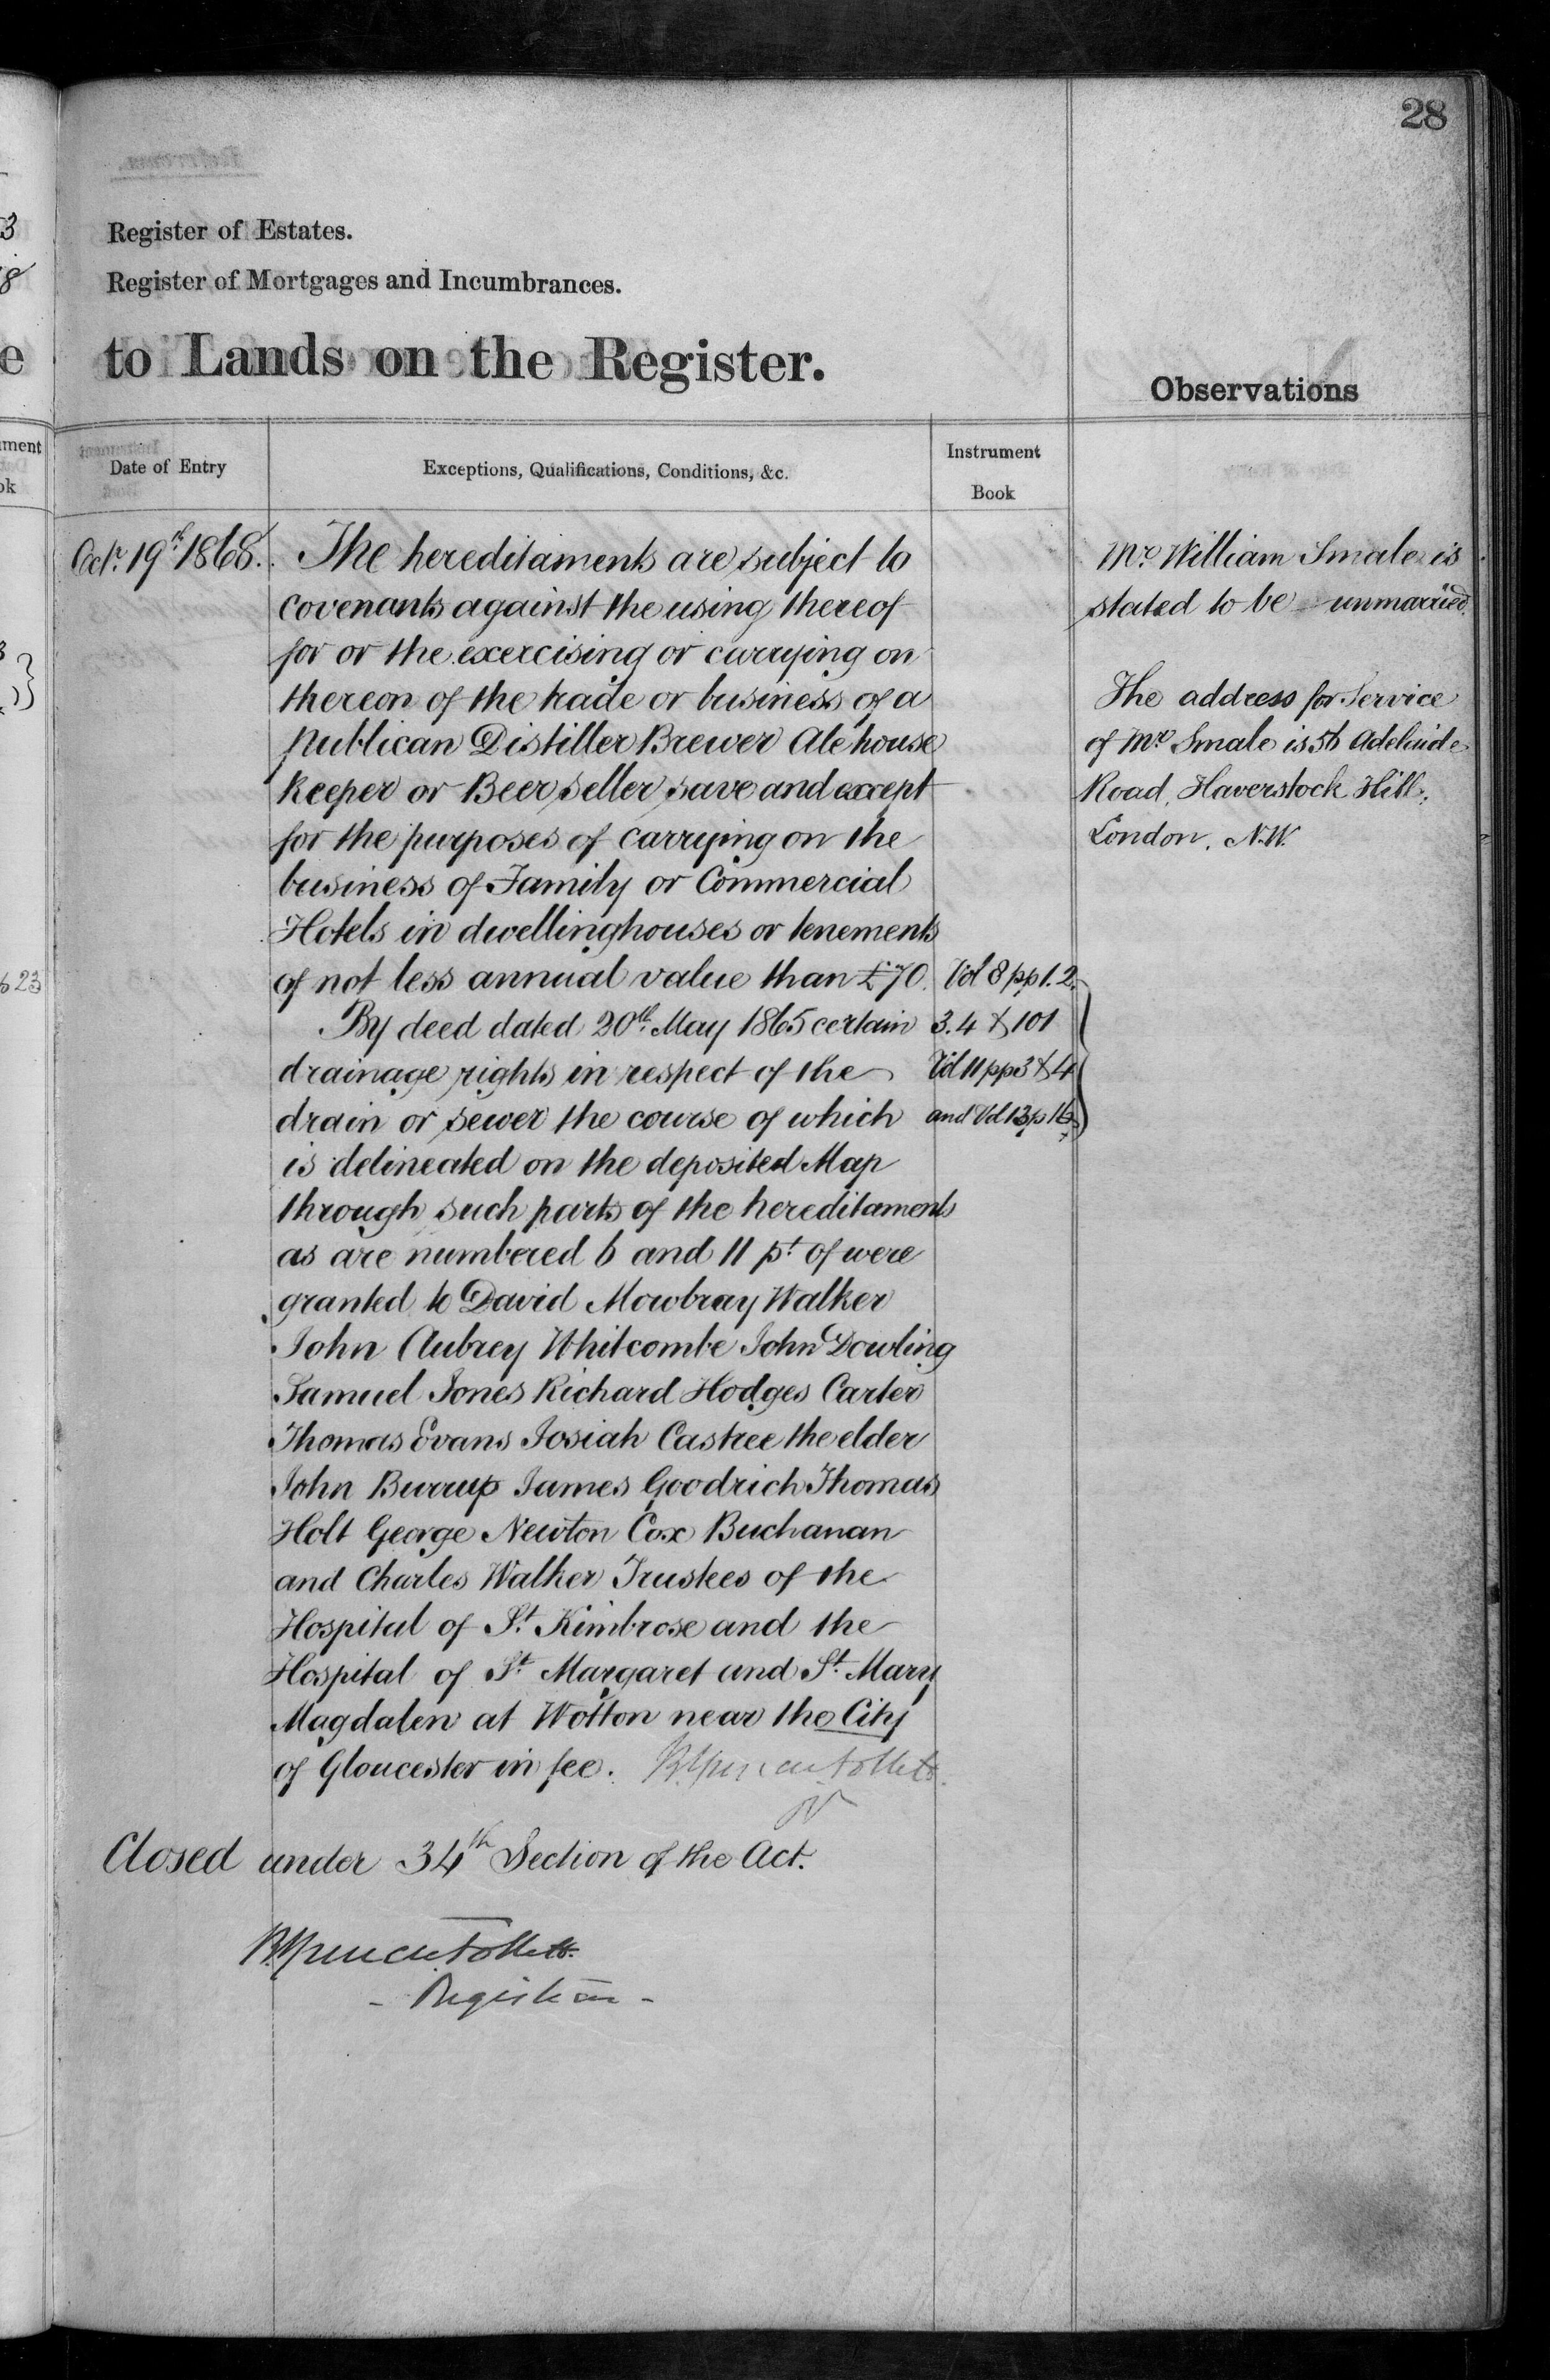 28
Register of Estates.
Register of Mortgages and Incumbrances.
to Lands on the Register.
Observations
Date of Entry
Exceptions, Qualifications, Conditions, &c.
Instrument
Book
Octr. 19th 1868.
The hereditaments are subject to
covenants against the using thereof
for or the exercising or carrying on
thereon of the trade or business of a
Publican Distiller Brewer Ale house
Keeper or Beer seller save and except
for the purposes of carrying on the
business of Family or Commercial
Hotels in dwellinghouses or tenements
of not less annual value than £70.
By deed dated 20th May 1865 certain
drainage rights in respect of the
drain or sewer the course of which
is delineated on the deposited Map
through such parts of the hereditaments
as are numbered 6 and 11 pt. of were
granted to David Mowbray Walker
John Aubrey Whitcombe John Dowling
Samuel Jones Richard Hodges Carter
Thomas Evans Josiah Castree the elder
John Burrup James Goodrich Thomas
Holt George Newton Cox Buchanan
and Charles Walker Trustees of the
Hospital of St. Kimbrose and the
Hospital of St. Margaret and St. Mary
Magdalen at Wotton near the City
of Gloucester in fee.
Vol 8 pp 1. 2.
3. 4 & 101
Vol 11 pp 3 & 4
and Vol 13 p 16
Mr. William Smale is
stated to be unmarried.
The address for Service
of Mr. Smale is 56 Adelaide
Road, Haverstock Hill,
London, N.W.
Closed under 34th Section of the Act.
Registrar
3
8
e
ument
ok
23